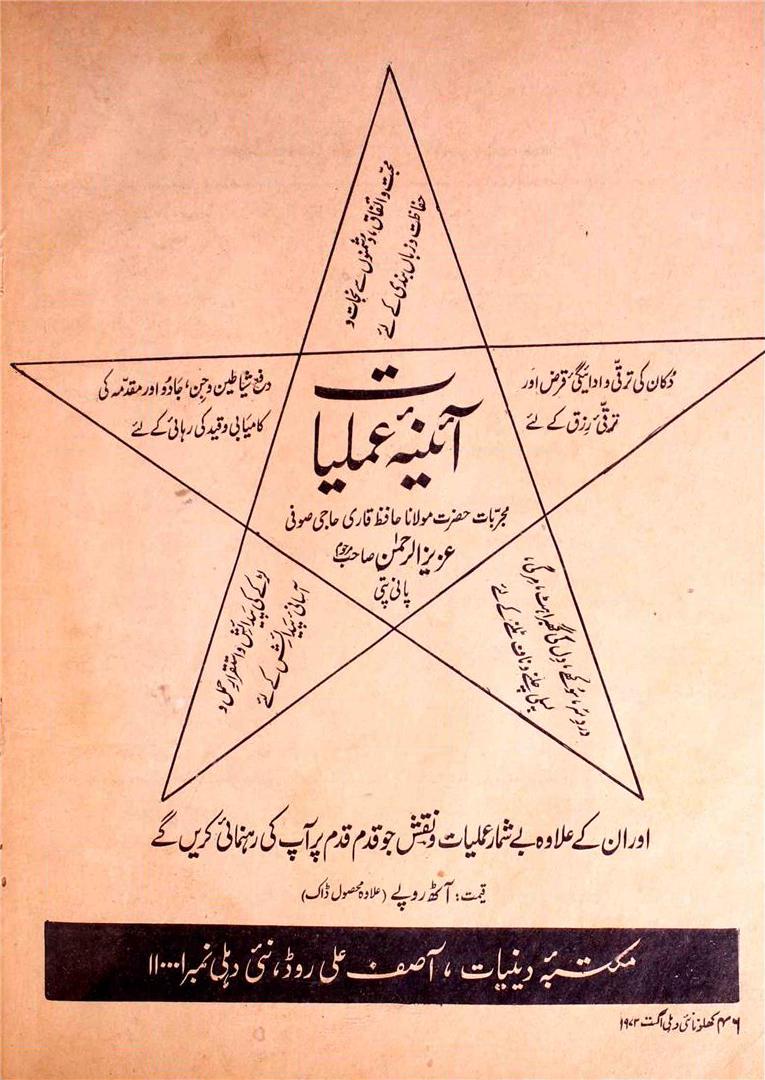 محبّت و اتفاق، دشمنوں سے نجات و
حفاظت و زباں بندی کے لئے
دُکان کی ترقّی و ادائیگیٔ قرض اور
ترقّیٔ رزق کے لئے
دفع شیاطین و جن، جادُو اور مقدّمہ کی
کامیابی و قید کی رہائی کے لئے
آئینۂ عملیات
مجرّبات حضرت مولانا حافظ قاری حاجی صوفی
عزیز الرحمٰن صاحب مرحوم
پانی پتی
دردِ سر، سُوکھے، دِل کی گھبراہٹ، مِرگی،
پسلی چلنے و ناف ٹلنے کے لئے
لڑکے کی پیدائش و استقرارِ حمل و
آسانیٔ پیدائش کے لئے
اور ان کے علاوہ بے شمار عملیات و نقش جو قدم قدم پر آپ کی رہنمائی کریں گے
قیمت: آٹھ روپے (علاوہ محصول ڈاک)
مکتبۂ دینیات، آصف علی روڈ، نئی دہلی نمبر ۱۱۰۰۰۱
۴۶ کھلونا نئی دہلی اگست ۱۹۷۳